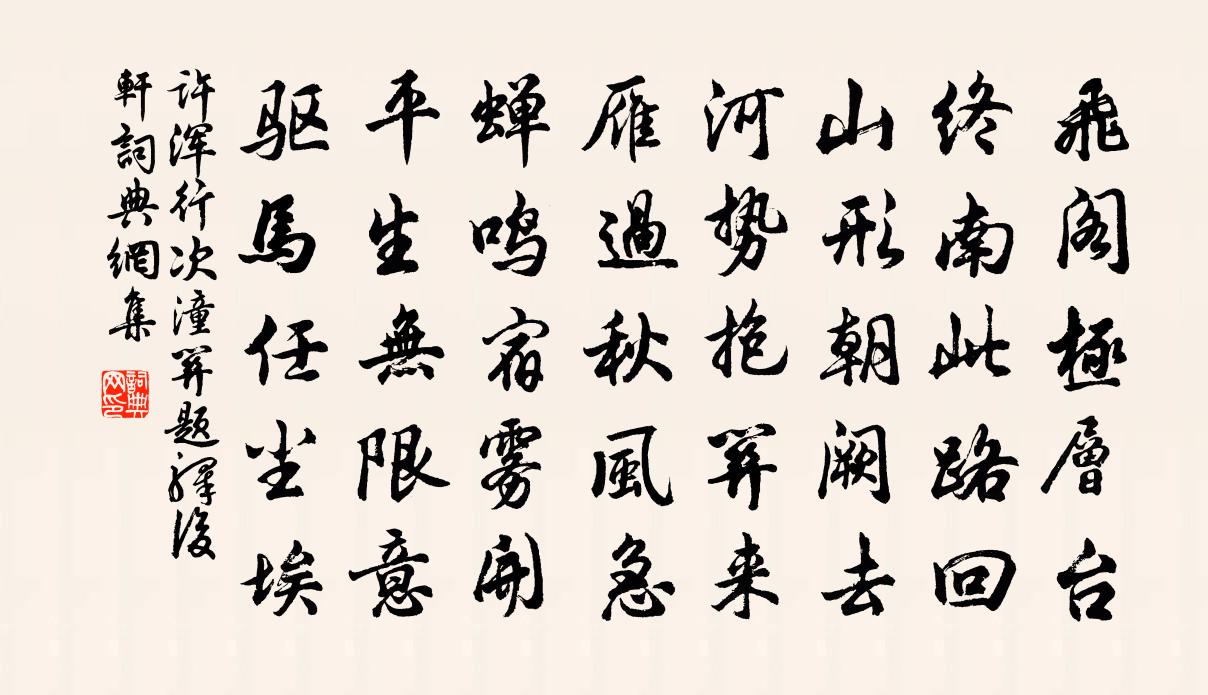 飛阁極層台
终南此路回
山形朝阙去
河势抱関来
雁過秋風急
蝉鸣宿雾開
平生無限意
驱馬任尘埃
许浑行次潼関题驛後
軒詞典網集
詞典网印